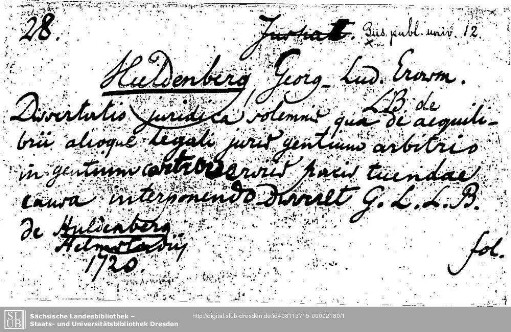 28.
Jus publ. univ. 12.
Huldenberg, Georg Lud. Erasm.
L.B. de
Dissertatio juridica solemnis qua de aequili-
brii alioque legali juris gentium arbitrio
in gentium controversiis pacis tuendae
causa interponendo Disseret G. L. L. B.
de Huldenberg
Helmstadij
1720.
fol.
Sächsische Landesbibliothek –
Staats- und Universitätsbibliothek Dresden